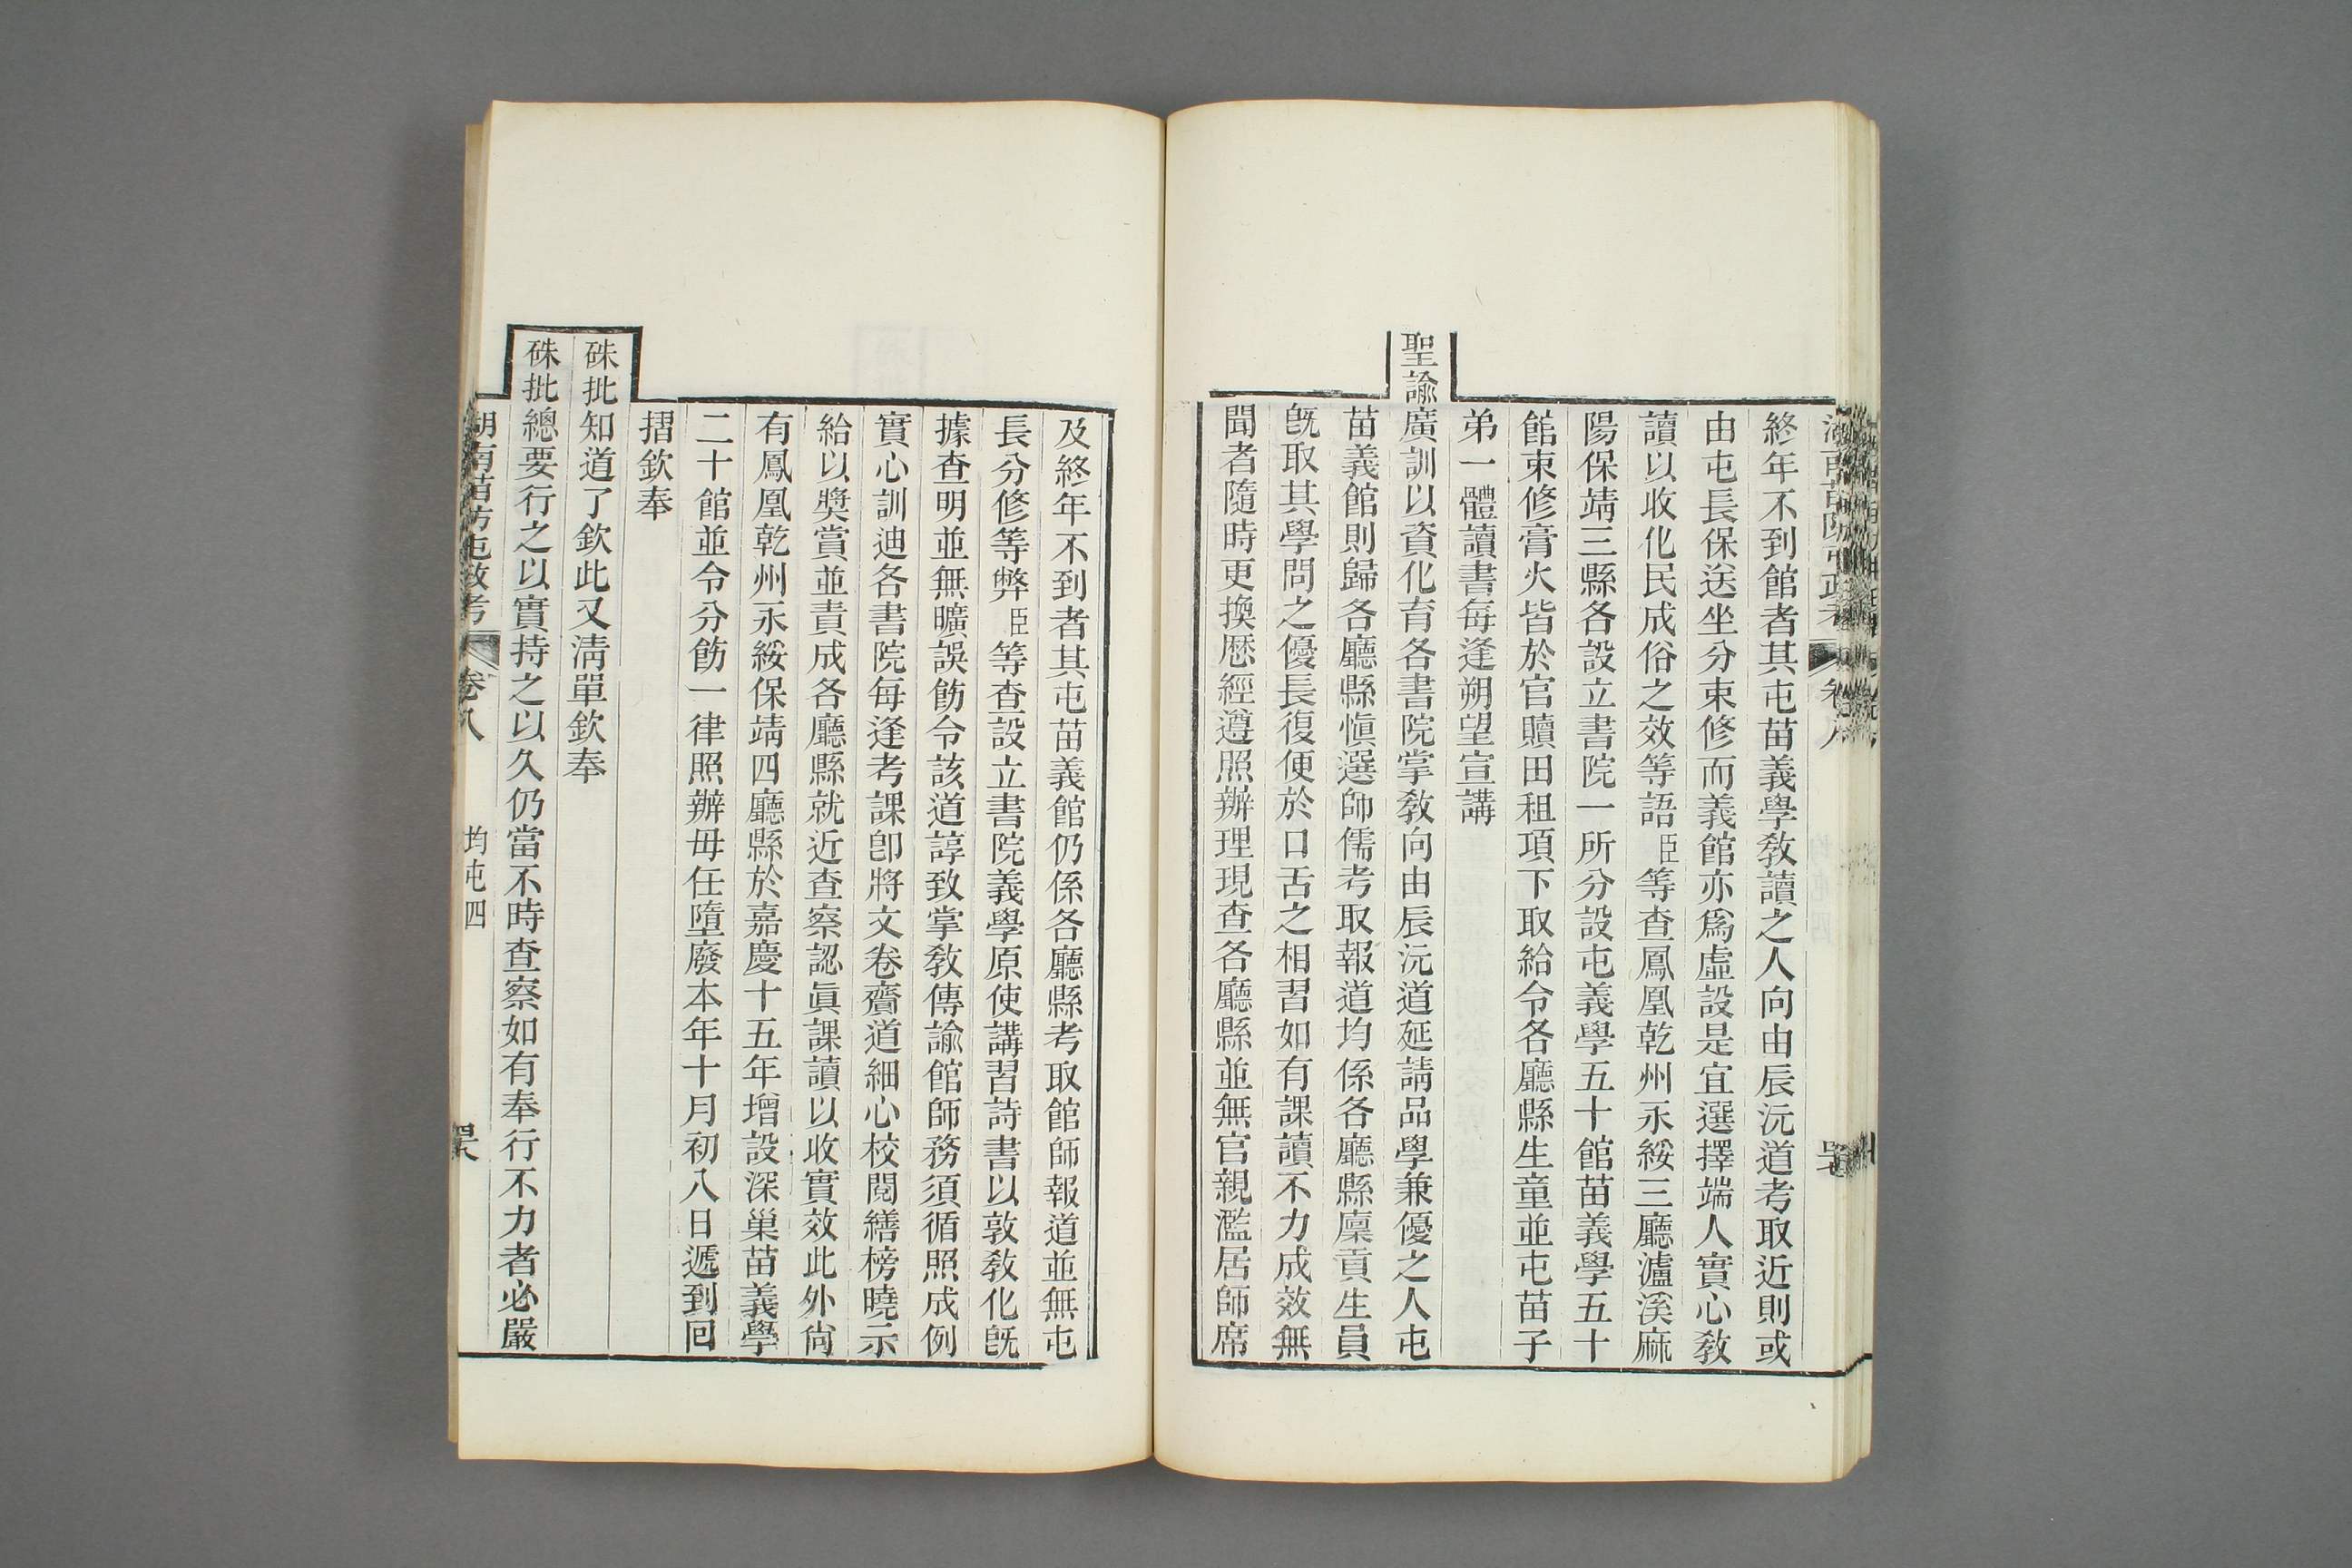 終年不到館者其屯苗義學教讀之人向由辰沅道考取近則或
由屯長保送坐分束修而義館亦爲虛設是宜選擇端人實心教
讀以收化民成俗之效等語臣等查鳳凰乾州永綏三廳瀘溪麻
陽保靖三縣各設立書院一所分設屯義學五十館苗義學五十
館束修膏火皆於官贖田租項下取給令各廳縣生童並屯苗子
弟一體讀書每逢朔望宣講
聖諭廣訓以資化育各書院掌教向由辰沅道延請品學兼優之人屯
苗義館則歸各廳縣愼選師儒考取報道均係各廳縣廩貢生員
旣取其學問之優長復便於口舌之相習如有課讀不力成效無
聞者隨時更換歷經遵照辦理現查各廳縣並無官親濫居師席
及終年不到者其屯苗義館仍係各廳縣考取館師報道並無屯
長分修等弊臣等查設立書院義學原使講習詩書以敦教化旣
據查明並無曠誤飭令該道諄致掌教傳諭館師務須循照成例
實心訓迪各書院每逢考課卽將文卷齎道細心校閱繕榜曉示
給以奬賞並責成各廳縣就近查察認眞課讀以收實效此外尙
有鳳凰乾州永綏保靖四廳縣於嘉慶十五年增設深巢苗義學
二十館並令分飭一律照辦毋任墮廢本年十月初八日遞到囘
摺欽奉
硃批知道了欽此又淸單欽奉
硃批總要行之以實持之以久仍當不時查察如有奉行不力者必嚴
湖南苗防屯政考 卷八 均屯四